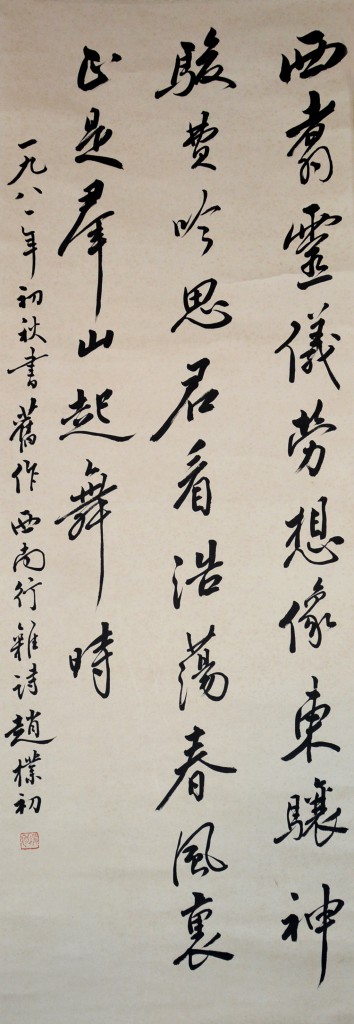 西翥靈儀勞想像東驤神
駿費吟思君看浩蕩春風裏
正是羣山起舞時
一九八一年初秋書舊作西南行雜詩趙樸初